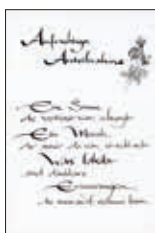 Aufrichtige
Anteilnahme
Eine Stimme
die vertraut war, schweigt
Ein Mensch
der immer da war, ist nicht mehr
Was bleibt
sind dankbare
Erinnerungen
die niemand nehmen kann